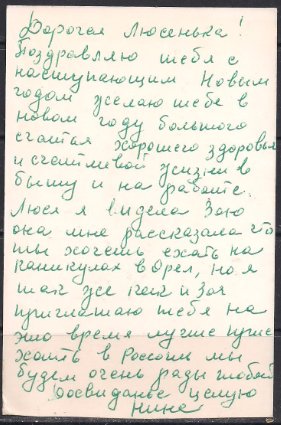 Дорогая Люсенька!
Поздравляю тебя с
наступающим Новым
годом желаю тебе в
новом году большого
счастья хорошего здоровья
и счастливой жизни в
быту и на работе.
Люся я видела Зою
она мне рассказала что
ты хочешь ехать на
каникулах в Орел, но я
так же как и Зоя
приглашаю тебя на
это время лучше
в мы
будем очень рады
Досвиданье целую
Нина